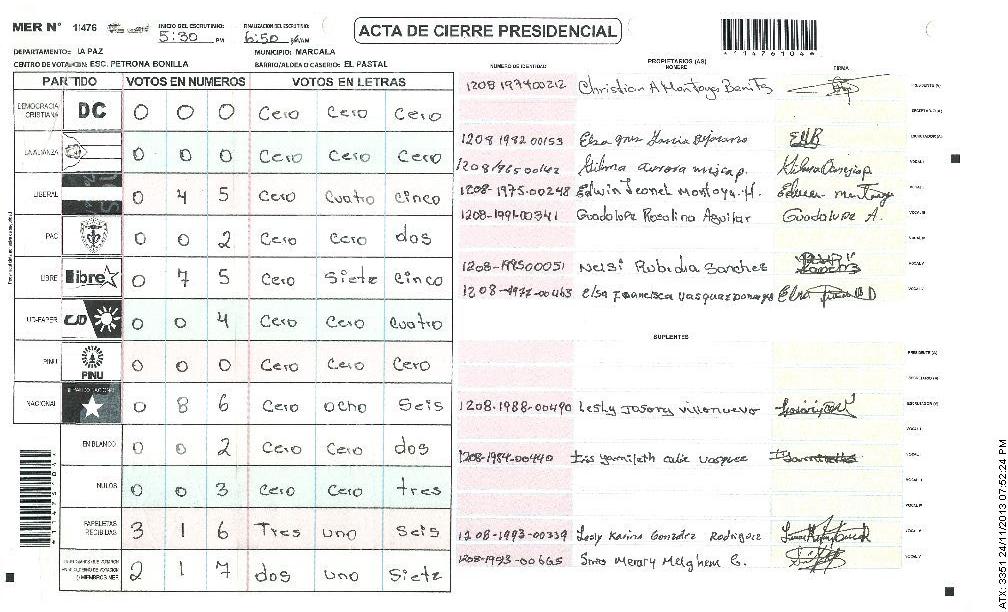 MER N° 11476 INICIO DEL ESCRUTINIO: 5:30 PM FINALIZACION DEL ESCRUTINIO: 6:50
ACTA DE CIERRE PRESIDENCIAL
DEPARTAMENTO: LA PAZ MUNICIPIO: MARCALA
CENTRO DE VOTACION: ESC. PETRONA BONILLA BARRIO/ALDEA O CASERIO: EL PASTAL
PARTIDO VOTOS EN NUMEROS VOTOS EN LETRAS
DEMOCRACIA CRISTIANA DC 0 0 0 Cero Cero Cero
LA ALIANZA 0 0 0 Cero Cero Cero
LIBERAL 0 4 5 Cero Cuatro cinco
PAC 0 0 2 Cero Cero dos
LIBRE libre 0 7 5 Cero Siete Cinco
UD-FAPER UD 0 0 4 Cero Cero Cuatro
PINU PINU 0 0 0 Cero Cero Cero
NACIONAL 0 8 6 Cero ocho Seis
EN BLANCO 0 0 2 Cero Cero dos
NULOS 0 0 3 Cero Cero tres
PAPELETAS RECIBIDAS 3 1 6 Tres uno Seis
2 1 7 dos uno Siete
PROPIETARIOS (AS)
NUMERO DE IDENTIDAD NOMBRE FIRMA
1208197400212 Christian A Montoya Benitz PRESIDENTE (A)
SECRETARIO (A)
1208 1982 00153 Elsa ESCRUTADOR (A)
aurora VOCAL I
1208-1975-00248 Edwin Leonel Montoya. H.
1208-1991-00341 Guadalupe Rosalina Aguilar Guadalupe A. VOCAL III
1208-199500051 Nelsi Rubidia Sanchez
Elsa Francisca
SUPLENTES
PRESIDENTE (A)
SECRETARIO (A)
1208-1988-00490 Lesly ESCRUTADOR (A)
VOCAL I
1208-1984-00440 Iris Yamileth
1208-1993-00339 Lesly Karina González Rodriguez
1208-1993-00665 Merary Melghem C.
ATX: 3351 24/11/2013 07:52:24 PM